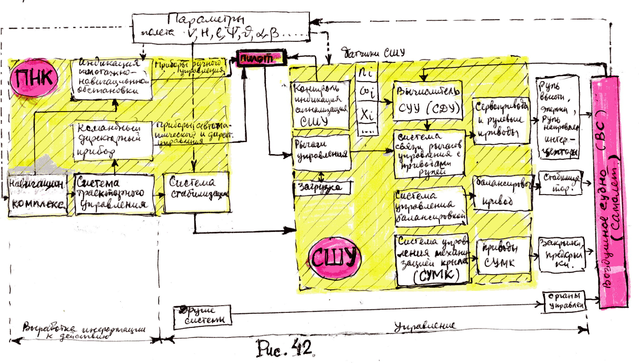 Параметры
полета - V, H, φ, Ψ, ϑ, α, β ...
ПНК
Индикация
пилотажно-
навигационно
обстановки
Приборы ручного
управления
пилот
Датчики СШУ
Командный
директорный
привод
управления
Навигацион
комплекс
Система
траекторного
управления
Система
стабилизац
Контроль
индикация
сигнализация
СШУ
Рычаги
управления
Загрузка
СШУ
ni
ωi
Xi
....
Вычислитель
СУУ (СДУ)
Система
связи рычагов
управления с
приводами
рулей
Система
управления
балансировкой
Система упров
ления механи-
зацией крыла
(СУМК)
Сервопривода
и рулевые
приводы
балансировоч
привод
приводы
СУМК
Руль
высоты,
элероны,
Руль
направлен
интер-
цептора
Стабилиза
тор
Закрылки,
предкрыл
ки.
органы
управлен
Воздушное судно (ВС)
(Самолет)
Другие
системы
Выработка информации
к действию
Управление
Рис. 42